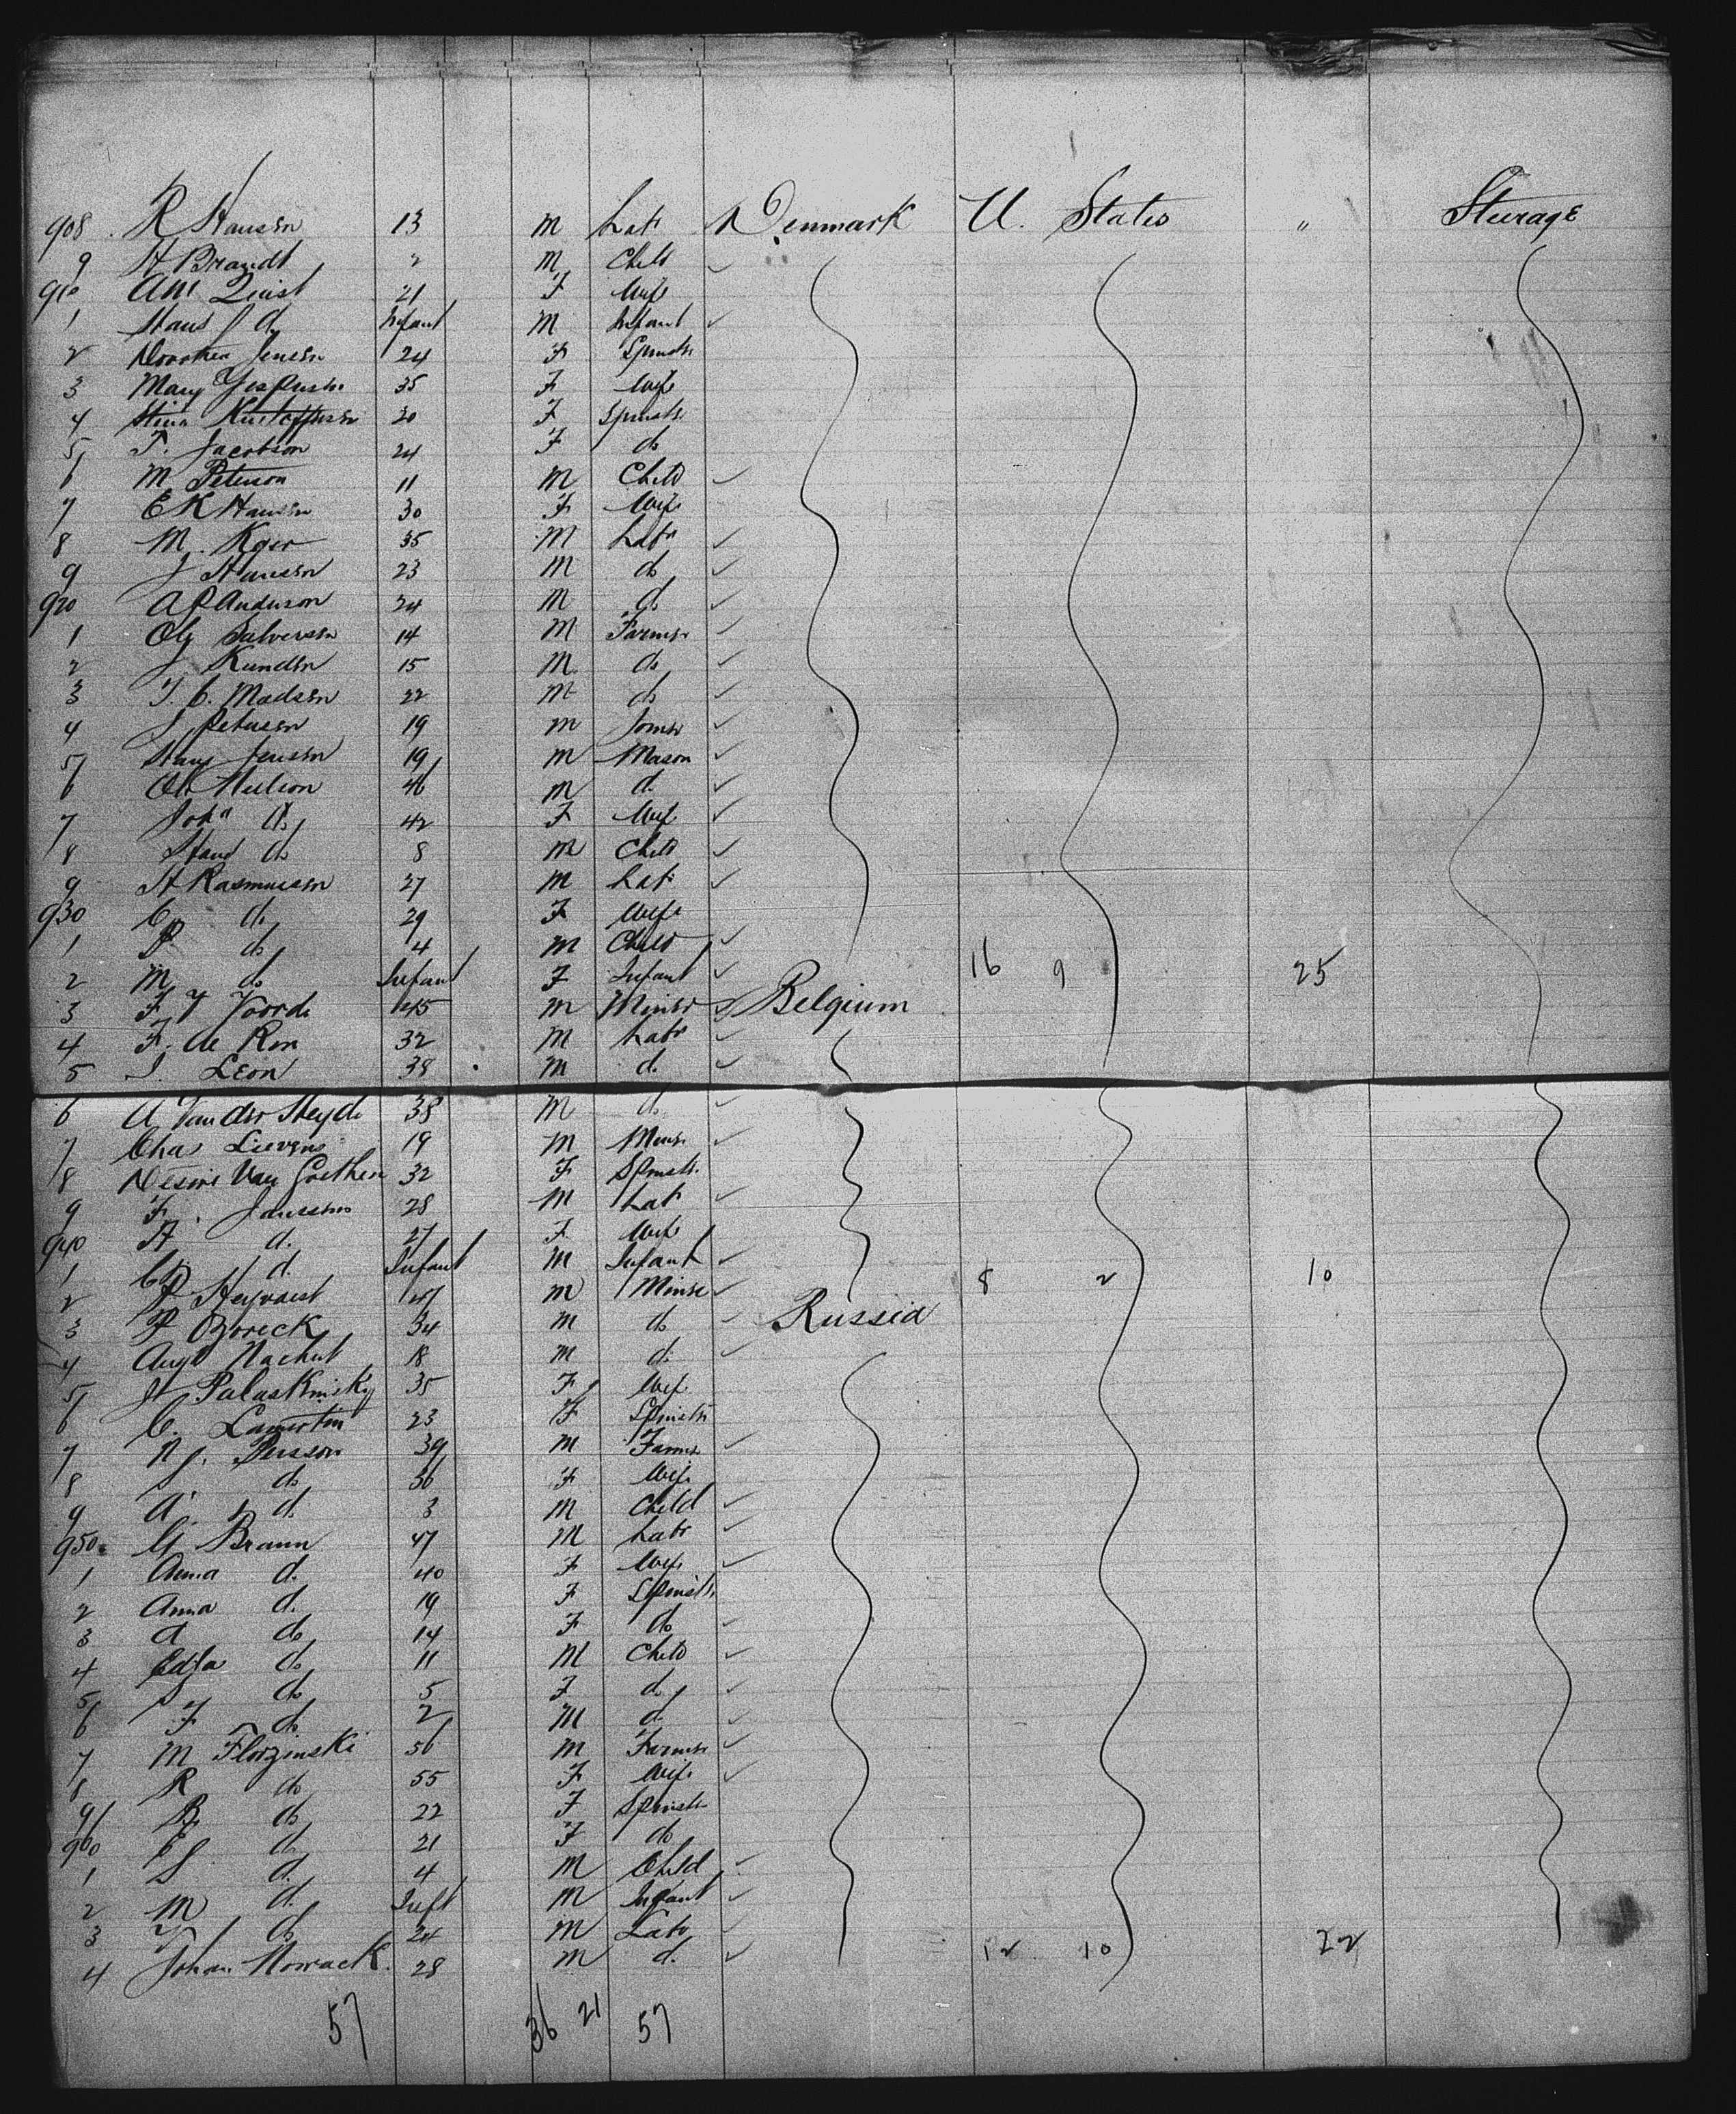 908 R Hansen 13 M Labr Denmark U. States " Steerage
9 H Brandt 2 M Child
910 AM Quist 21 F Wife
1 Hans do Infant M Infant
2 Dorothea Jensen 24 F Spinstr
3 Mary 35 F Wife
4 Stina 30 F Spinstr
5 T. Jacobson 24 F do
6 M Peterson 11 M Child
7 E K Hansen 30 F Wife
8 M. Kger 35 M Labr
9 J Hansen 23 M do
920 A P Anderson 24 M do
1 Ole Salversen 14 M Farmer
2 J Kundsen 15 M do
3 J. C. Madsen 22 M do
4 J Petersen 19 M Joiner
5 Hans Jensen 19 M Mason
6 46 M d.
7 Joha do 42 F Wife
8 Hans do 8 M Child
9 H Rasmussen 27 M Labr
930 C do 29 F Wife
1 P do 4 M Child
2 M do Infant F Infant 16 9 25
3 F V Voorde 45 M Miner Belgium
4 F. de Ron 32 M Labr
5 J. Leon 38 M d.
6 A Van der Heyde 38 M do
7 Chas Lievens 19 M Miner
8 Desire Van Goethem 32 F Spinstr
9 F. Janssens 28 M Labr
940 H d. 27 F Wife
1 CP d. Infant M Infant
2 P Heyvaert 47 M Miner 8 2 10
3 P Ozoreck 34 M do Russia
4 Augt Nachut 18 M d.
5 H Palaskinsky 35 F Wife
6 C. Lamertin 23 F Spinstr
7 N J. Persson 39 M Farmer
8 S. do 36 F Wife
9 A. d. 3 M Child
950 G Braun 47 M Labr
1 Anna d. 40 F Wife
2 Anna d. 19 F Spinstr
3 A do 14 F do
4 do 11 M Child
5 S do 5 F d.
6 F do 2 M d.
7 M Florzinski 56 M Farmer
8 R do 55 F Wife
9 B do 22 F Spinstr
960 d. 21 F do
1 S d. 4 M Child
2 M d. Inft M Infant
3 do 24 M Labr
4 Johan Nowack 28 M d. 12 10 22
57 36 21 57